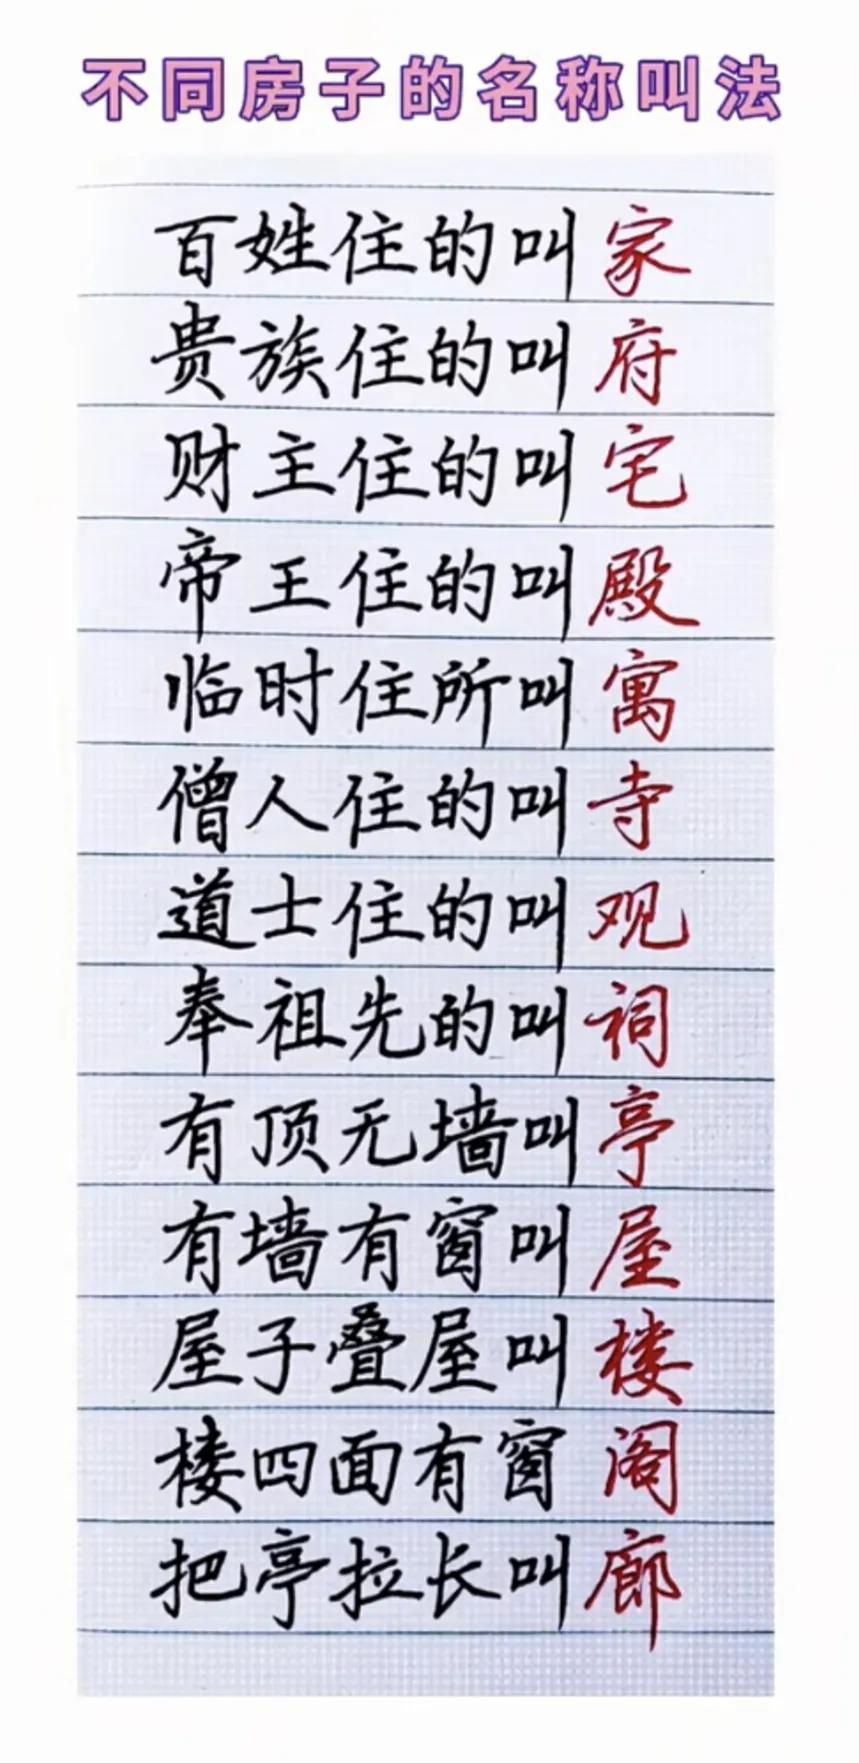 不同房子的名称叫法
百姓住的叫家
贵族住的叫府
财主住的叫宅
帝王住的叫殿
临时住所叫寓
僧人住的叫寺
道士住的叫观
奉祖先的叫祠
有顶无墙叫亭
有墙有窗叫屋
屋子叠屋叫楼
楼四面有窗阁
把亭拉长叫廊